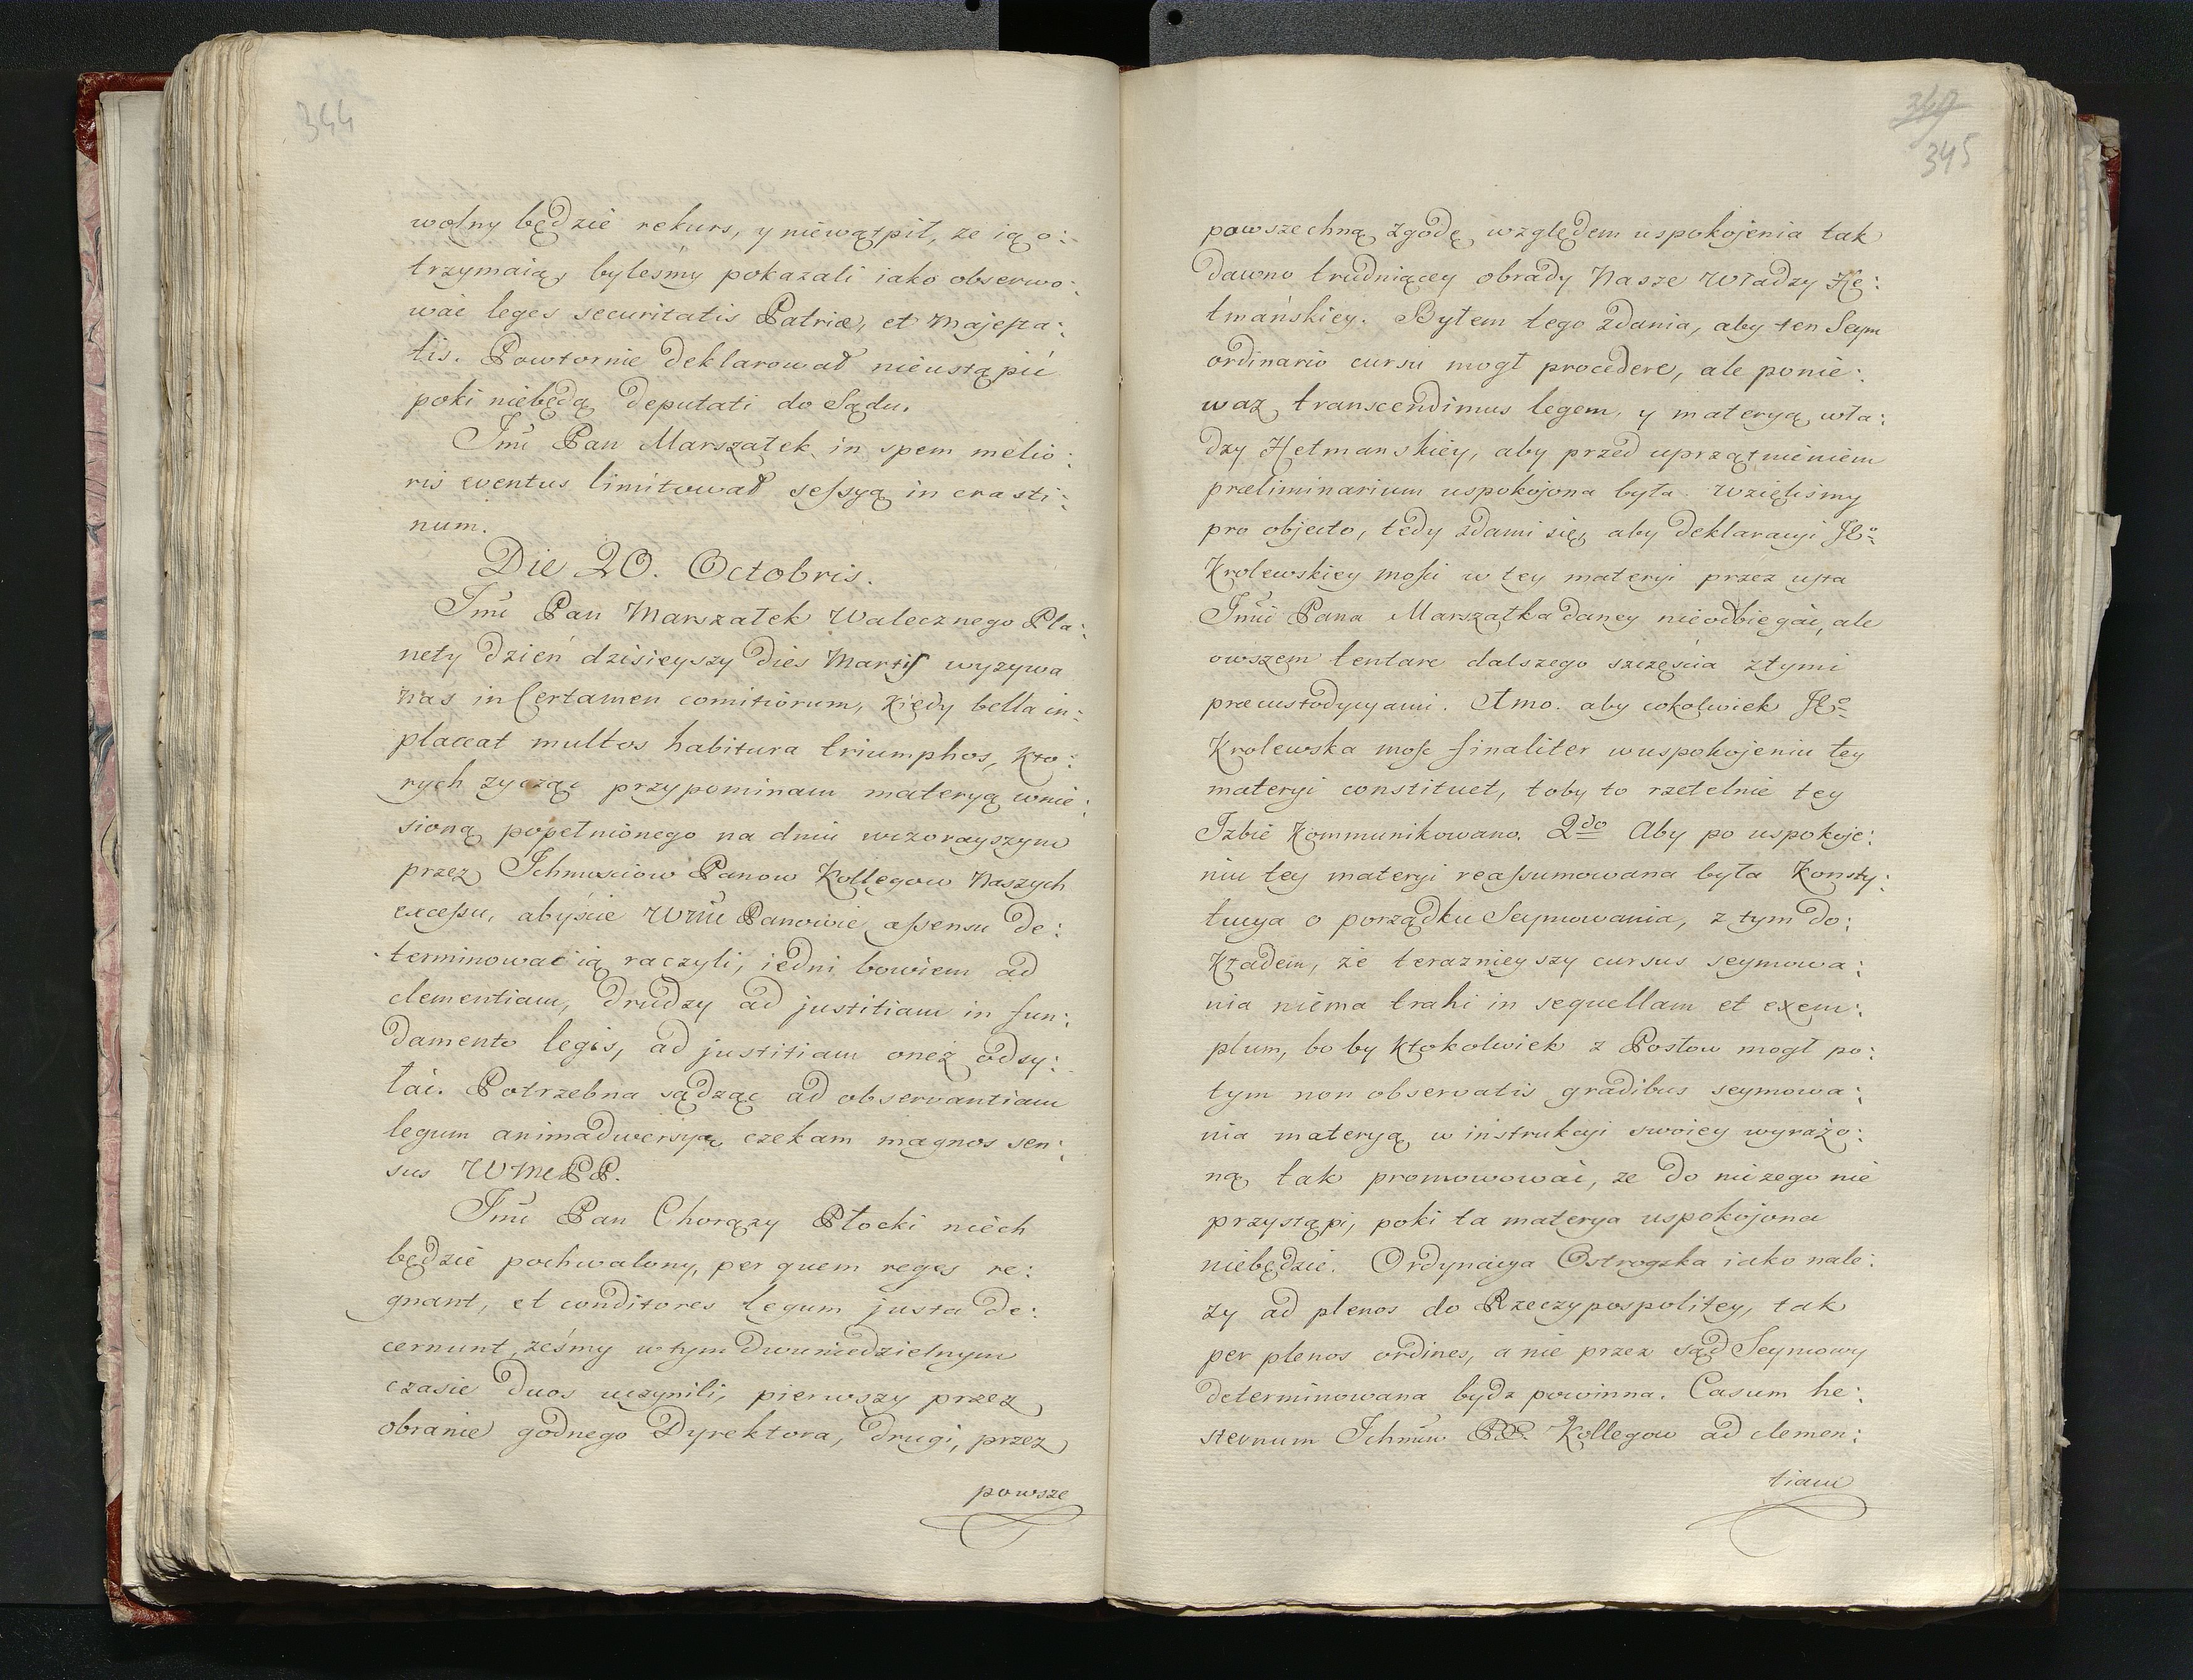 344
wolny będzie rekurs, y niewątpił, ze ią o:
trzymaią, byleśmy pokazali iako obserwo:
wać leges securitatis Patriæ, et Majesta:
tis. Powtornie deklarował nieustąpić
poki niebędą deputati do Sądu.
Jmć Pan Marszałek in spem melio:
ris eventus limitował sessyą in crasti:
num.
Die 20. Octobris.
Jmć Pan Marszałek Walecznego Pla:
nety dzień dzisieyszy dies Martis wyzywa
nas in Certamen comitiorum, kiedy bella in:
placeat multos habitura triumphos, kto:
rych zycząc przypominam materyą wnie:
sioną popełnionego na dniu wczorayszym
przez Ichmusciow Panow Kollegow Naszych
excessu, abyście WMć Panowie assensu de:
terminować ią raczyli, iedni bowiem ad
clementiam, drudzy ad justitiam in fun:
damento legis, ad justitiam oneż odsy:
łać. Potrzebna sądząc ad observantiam
legum animadwersyą czekam magnos sen:
sus WMePP.
Jmć Pan Chorązy Płocki niech
będzie pochwalony, per quem reges re:
gnant, et conditores legum justa de:
cernunt, ześmy w tym dwuniedzielnym
czasie duos uczynili, pierwszy przez
obranie godnego Dyrektora, drugi, przez
powsze
349
345
powszechną zgodę względem uspokojenia tak
dawno trudniącey obrady Nasze Władzy He:
tmańskiey. Byłem tego zdania, aby ten Seym
ordinario cursu mogł procedere, ale ponie:
waz transcendimus legem, y materyą wła:
dzy Hetmanskiey, aby przed uprzątnieniem
præliminarium uspokojona była. Wzięliśmy
pro objecto, tedy zdami się, aby deklaracyi JKo
Krolewskiey mości w tey materyi przez usta
Jmci Pana Marszałka daney nieodbiegać, ale
owszem tentare dalszego szczęścia z tymi
præcustodycyami. 1mo. aby cokolwiek JKo
Krolewska mość finaliter w uspokojeniu tey
materyi constituet, toby to rzetelnie tey
Izbie kommunikowano. 2do Aby po uspokoje:
niu tey materyi reassumowana była Konsty:
tucya o porządku Seymowania, z tym do:
kładem, że teraznieyszy cursus seymowa:
nia niema trahi in sequellam et exem:
plum, bo by ktokolwiek z Posłow mogł po:
tym non observatis gradibus seymowa:
nia materyą w instrukcyi swoiey wyrażo:
ną tak promowować, ze do niczego nie
przystąpi, poki ta materya uspokojona
niebędzie. Ordynacya Ostrogska iako nale:
zy ad plenos do Rzeczypospolitey, tak
per plenos ordines, a nie przez sąd Seymowy
determinowana bydz powinna. Casum he:
sternum Ichmciw PP. Kollegow ad clemen:
tiam